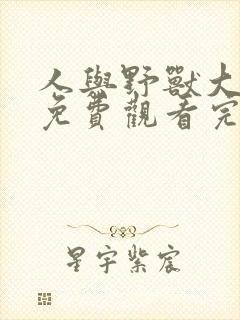 人與野獸大
免費觀看完
星宇紫宸